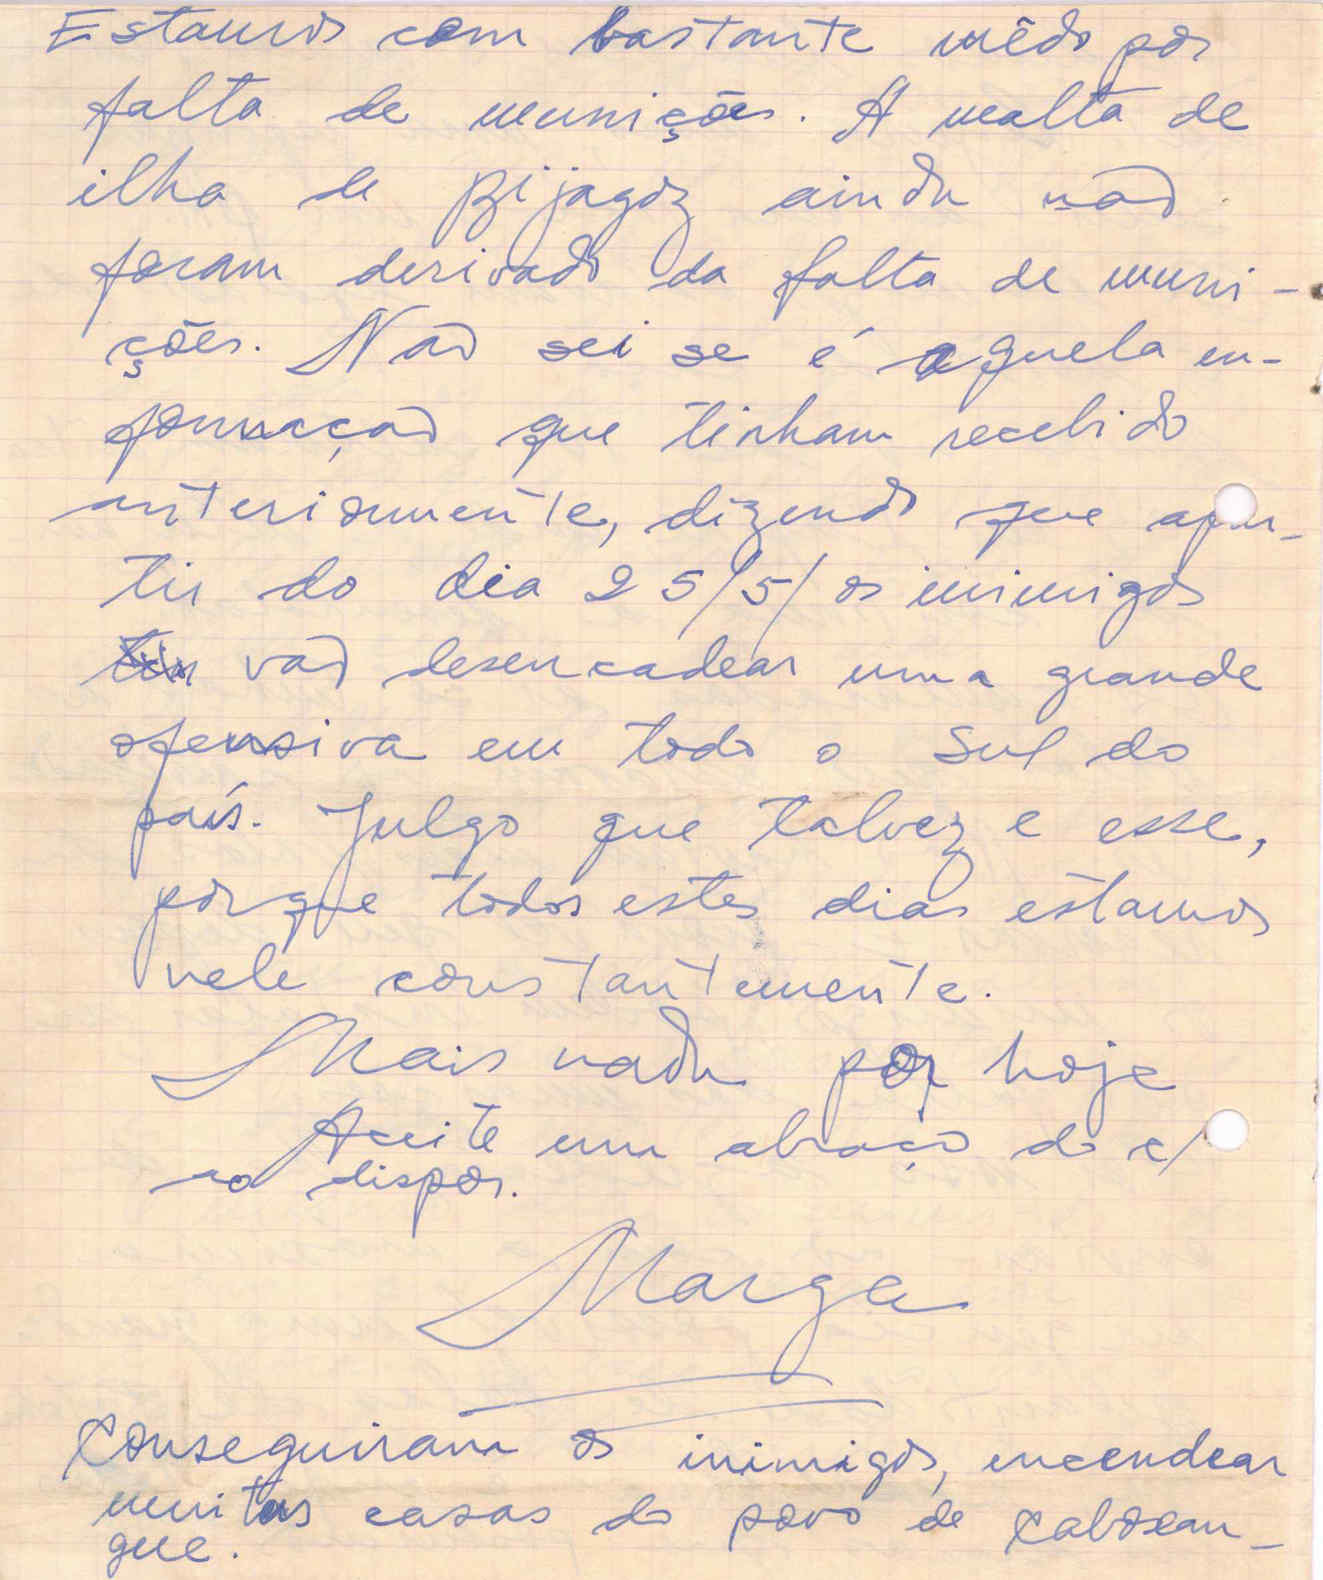 Estamos com bastante mêdo por
falta de munições. A malta de
ilha de Bijagoz ainda não
foram derivado da falta de muni-
ções. Não sei se é aquela in-
formação que tinham recebido
anteriormente, dizendo que apar-
tir do dia 25/5/ os inimigos
vão desencadear uma grande
ofensiva em todo o Sul do
país. Julgo que talvez e esse,
porque todos estes dias estamos
nele constantemente.
Mais nada por hoje
Aceite um abraço do c/
ao dispor.
Marga
Conseguiram os inimigos, encendear
muitas casas do povo de Caboxan-
gue.